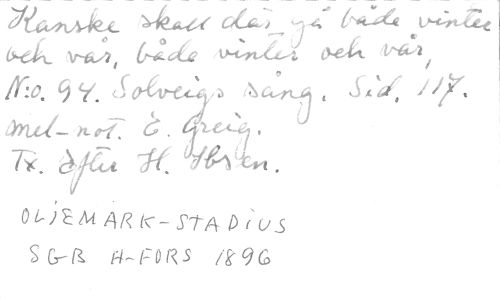 Kanske skall där gå både vinter
och vår, både vinter och vår,
N:o. 94. Solveigs sång. Sid. 117.
mel-not. E. Greig.
Tx. efter H. Ibsen.
OLJEMARK-STADIUS
SGB H-FORS 1896